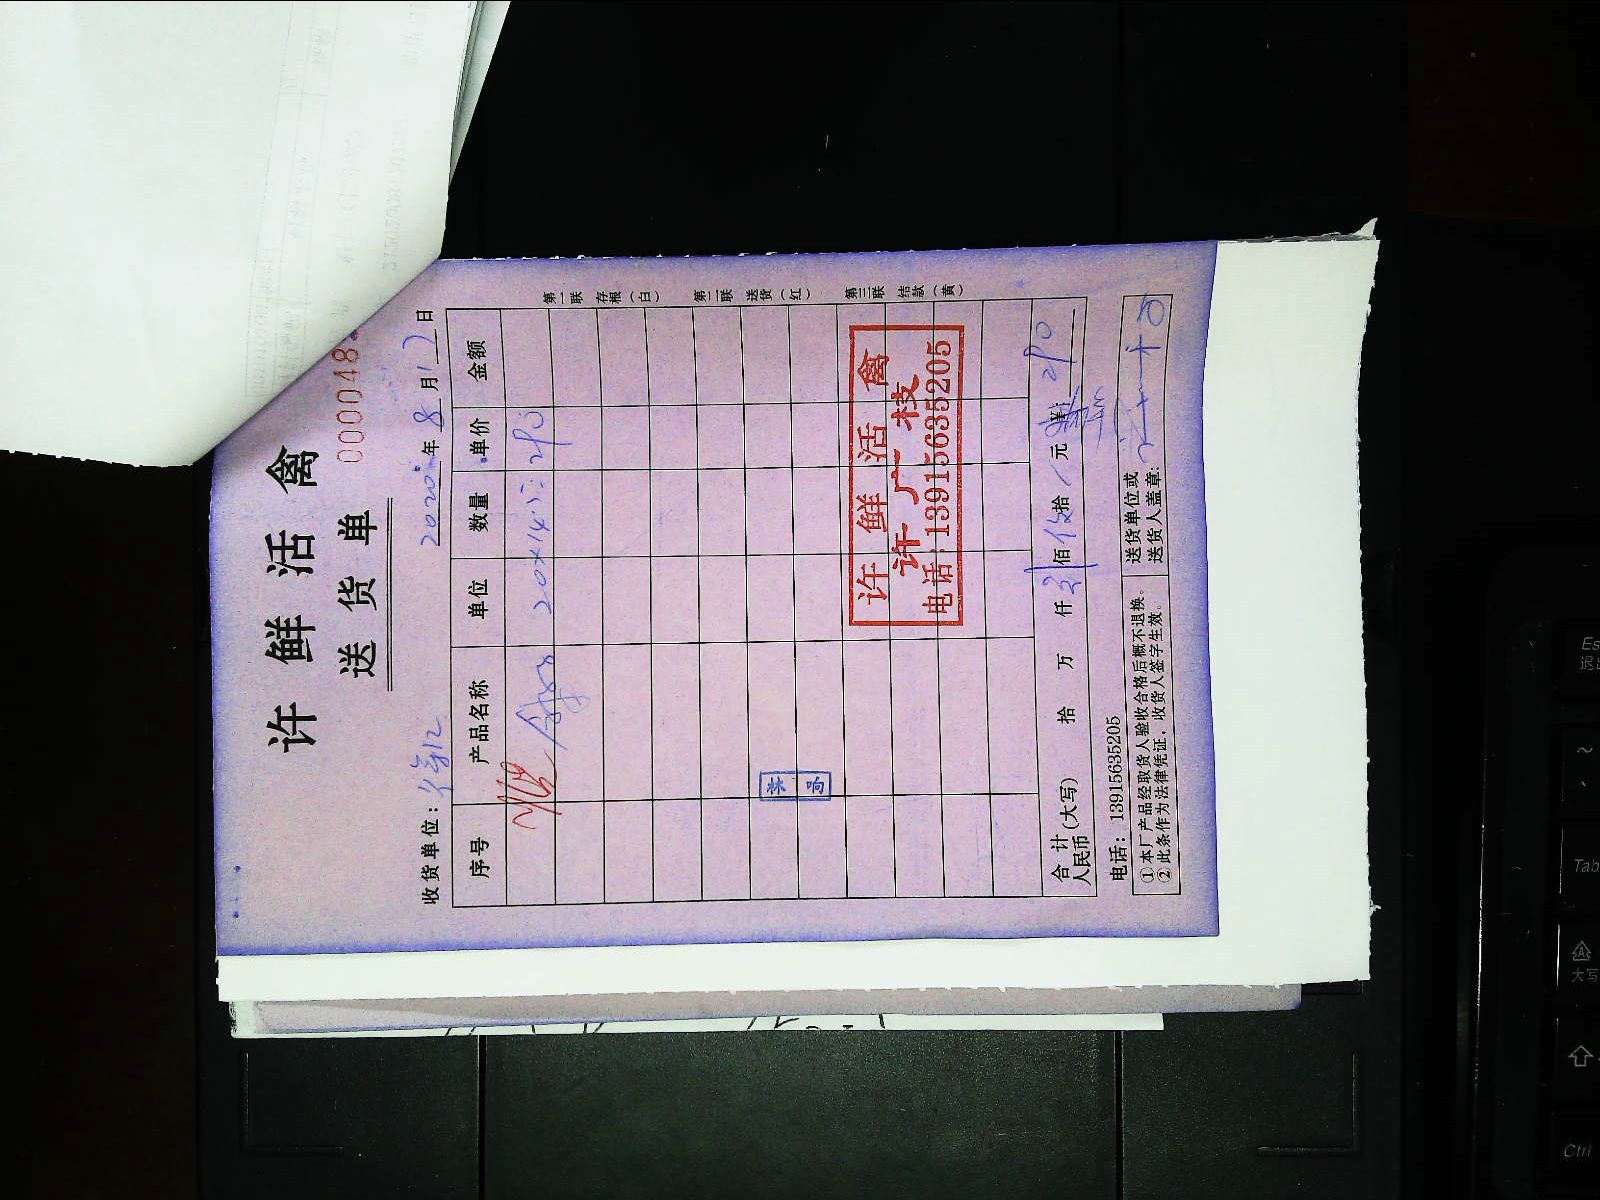 许鲜活禽
送货单
000048
2020年8月17日
收货单位:
序号 产品名称 单位 数量 单价 金额
20×14.5=290
第一联 存根(白)
第二联 送货(红)
第三联 结款(黄)
许鲜活禽
许广枝
电话:13915635205
合计(大写)
人民币 拾 万 仟 佰 拾 元 ¥: 290
电话:13915635205
①本厂产品经取货人验收合格后概不退换。
②此条作为法律凭证,收货人签字生效。
送货单位或
送货人盖章:
Tab
大写
Ctrl